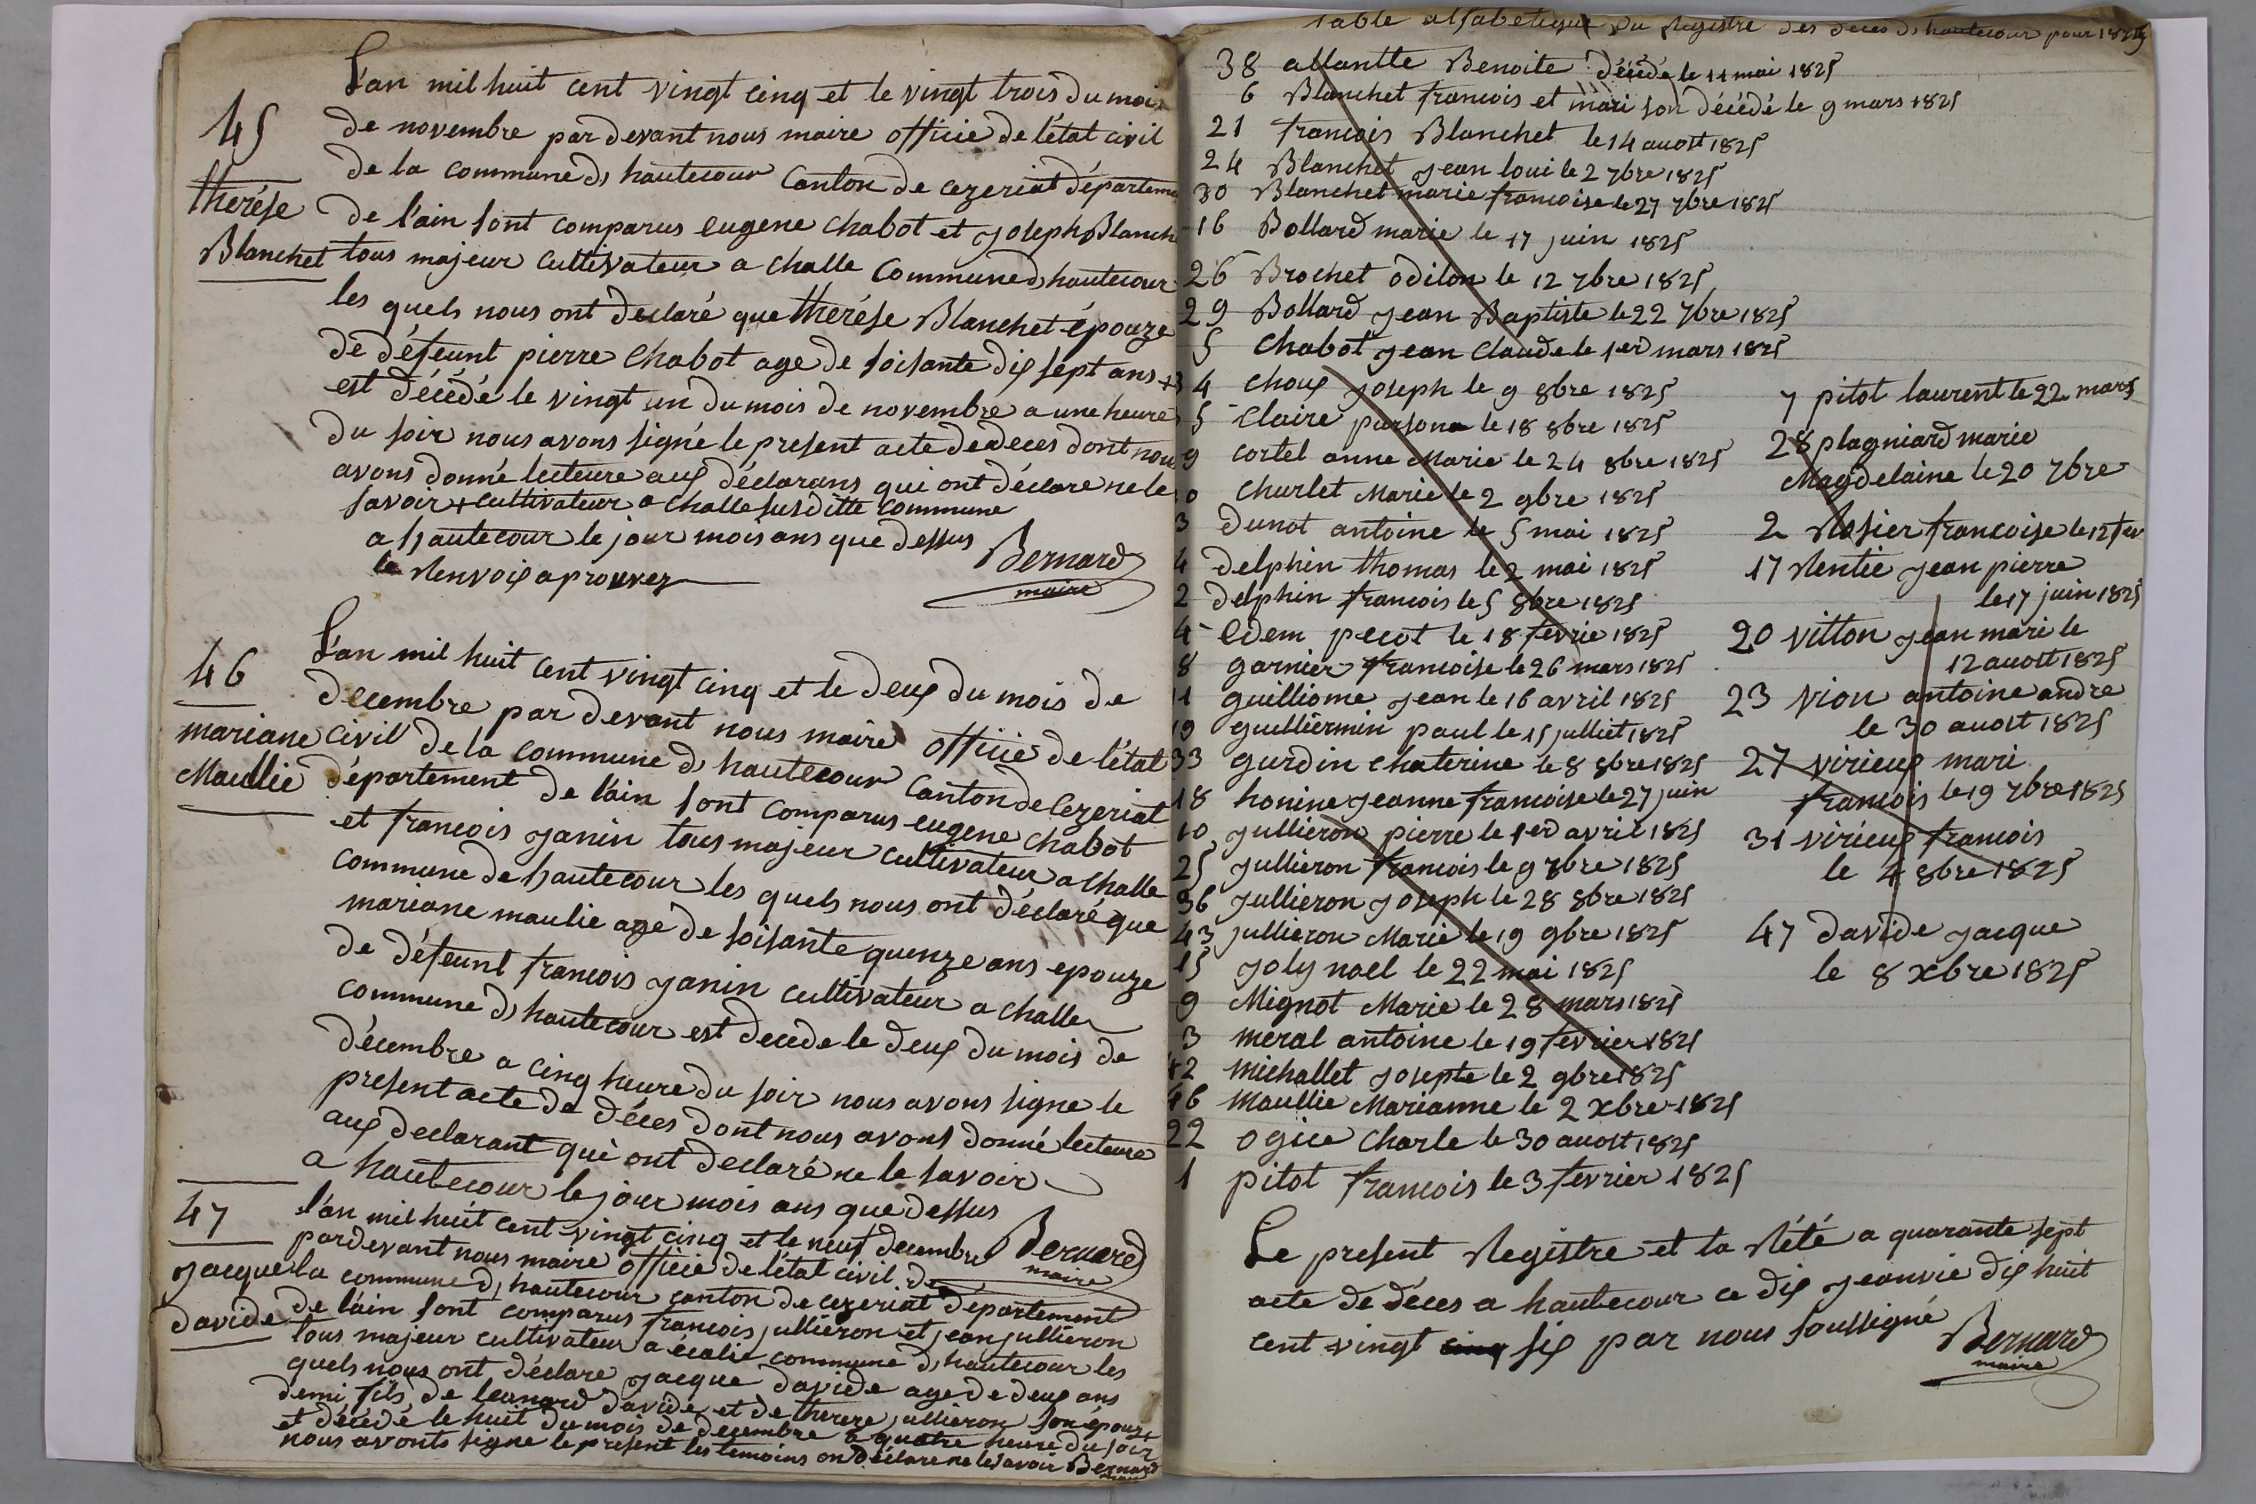 L'an mil huit cent vingt cinq et le vingt trois du mois
45
de novembre par devant nous maire officie de l'état civil
de la commune d, hautecour Canton de cezeriat départeme
therése
de l'ain sont comparus eugene chabot et joseph Blanch
Blanchet
tous majeur cultivateur a challe commune d, hautecour
les quels nous ont declaré que therése Blanchet épouze
de défeunt pierre chabot age de soisante dix sept ans +
est décédé le vingt un du mois de novembre a une heure
du soir nous avons signé le present acte de deces dont nous
avons donné lecteure aux déclarans qui ont déclare ne le
savoir + cultivateur a challe susditte commune
a hautecour le jour mois ans que dessus
Bernard
maire
le Renvois aprouvez
L'an mil huit cent vingt cinq et le deux du mois de
46
decembre par devant nous maire officie de l'état
mariane
civil de la commune d, hautecour Canton de Cezeriat
Maullie
département de l'ain sont comparus eugene chabot
et francois janin tous majeur cultivateur a challe
commune de hautecour les quels nous ont déclaré que
mariane maulie age de soisante quenze ans epouze
de défeunt francois janin cultivateur a challe
commune d, hautecour est decede le deux du mois de
décembre a cinq heure du soir nous avons signe le
present acte de déces dont nous avons donné lecteure
aux declarant qui ont declaré ne le savoir
a hautecour le jour mois ans que dessus
Bernard
maire
47
l'an mil huit cent vingt cinq et le neuf decembre
pardevant nous maire officie de l'état civil de
jacque
la commune d, hautecour canton de cezeriat département
davide
de l'ain sont comparus francois jullieron et jean jullieron
tous majeur cultivateur a écolie commune d, hautecour les
quels nous ont déclare jacque davide age de deux ans
demi fils de leonard davide et de therere jullieron son épouze
et décédé le huit du mois de decembre a quatre heure du soir
nous avonts signe le present les temoins on déclare ne le savoir Bernard
maire
table alfabetique du Registre des deces d, hautecour pour 1825
38 allantte Benoite décédé le 11 mai 1825
6 Blanchet francois et mari son décédé le 9 mars 1825
21 francois Blanchet le 14 auost 1825
24 Blanchet jean loui le 2 7bre 1825
30 Blanchet marie francoise le 27 7bre 1825
16 Bollard marie le 17 juin 1825
26 Brochet odilon le 12 7bre 1825
29 Bollard jean Baptiste le 22 7bre 1825
5 chabot jean claude le 1er mars 1825
34 choux joseph le 9 8bre 1825
5 claire pursona le 18 8bre 1825
9 cortel anne Marie le 24 8bre 1825
0 churlet Marie le 2 9bre 1825
3 dunot antoine le 5 mai 1825
4 delphin thomas le 2 mai 1825
2 delphin francois le 5 8bre 1825
4 edem pecot le 18 fevrie 1825
8 garnier francoise le 26 mars 1825
11 guilliome jean le 16 avril 1825
19 guilliermin paul le 15 julliet 1825
33 gurdin chaterine le 8 8bre 1825
18 honine jeanne francoise le 27 juin
10 jullieron pierre le 1er avril 1825
25 jullieron francois le 9 7bre 1825
36 jullieron joseph le 28 8bre 1825
43 jullieron Marie le 19 9bre 1825
15 joly noel le 22 mai 1825
9 Mignot Marie le 28 mars 1825
3 meral antoine le 19 fevrier 1825
42 michallet josepte le 2 9bre 1825
46 maullie Marianne le 2 xbre 1825
22 ogice charle le 30 auost 1825
1 pitot francois le 3 fevrier 1825
7 pitot laurent le 22 mars
28 plagniard marie
Magdelaine le 20 7bre
2 Rosier francoise le 12 fev
17 Rentie jean pierre
le 17 juin 1825
20 vitton jean mari le
12 auost 1825
23 vion antoine andre
le 30 auost 1825
27 virieux mari
francois le 19 7bre 1825
31 virieux francois
le 4 8bre 1825
47 davide jacque
le 8 xbre 1825
Le present Registre et la Rété a quarante sept
acte de déces a hautecour ce dix jeanvie dix huit
cent vingt cinq six par nous soussigné
Bernard
maire